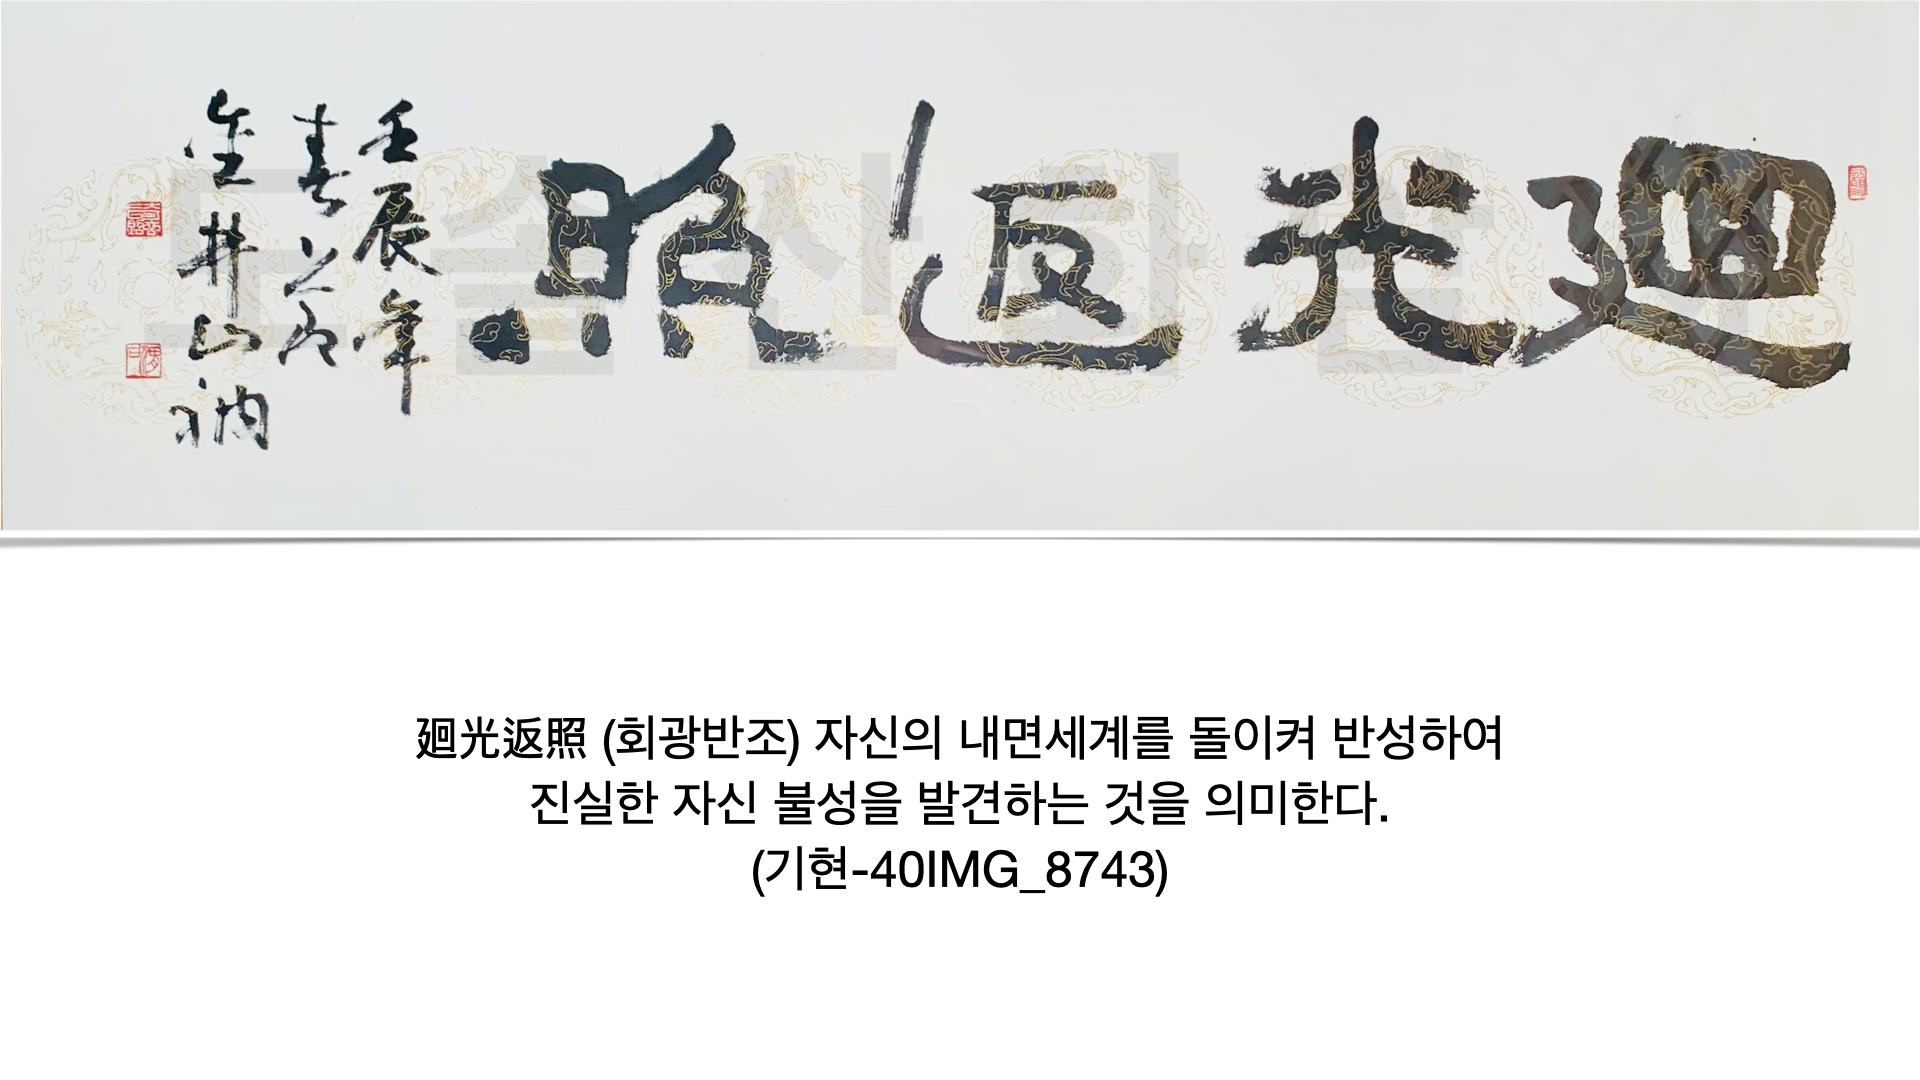 廻光返照
壬辰年
春
金井山衲
廻光返照 (회광반조) 자신의 내면세계를 돌이켜 반성하여
진실한 자신 불성을 발견하는 것을 의미한다.
(기현-40IMG_8743)